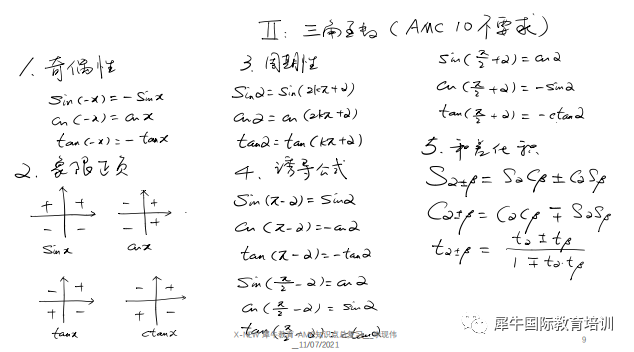 II: 三角函数 (AMC 10 不要求)
1. 奇偶性
sin(-x) = -sinx
cos(-x) = cosx
tan(-x) = -tanx
2. 象限正负
+ +
- -
sinx
- +
- +
cosx
- +
+ -
tanx
- +
+ -
ctanx
3. 周期性
sinα = sin(2kπ+α)
cosα = cos(2kπ+α)
tanα = tan(kπ+α)
4. 诱导公式
sin(π-α) = sinα
cos(π-α) = -cosα
tan(π-α) = -tanα
sin(π/2-α) = cosα
cos(π/2-α) = sinα
tan(π/2-α) = ctanα
sin(π/2+α) = cosα
cos(π/2+α) = -sinα
tan(π/2+α) = -ctanα
5. 和差化积
Sα±β = SαCβ ± CαSβ
Cα±β = CαCβ ∓ SαSβ
tα±β = (tα ± tβ) / (1 ∓ tα·tβ)
犀牛国际教育培训
_11/07/2021
9